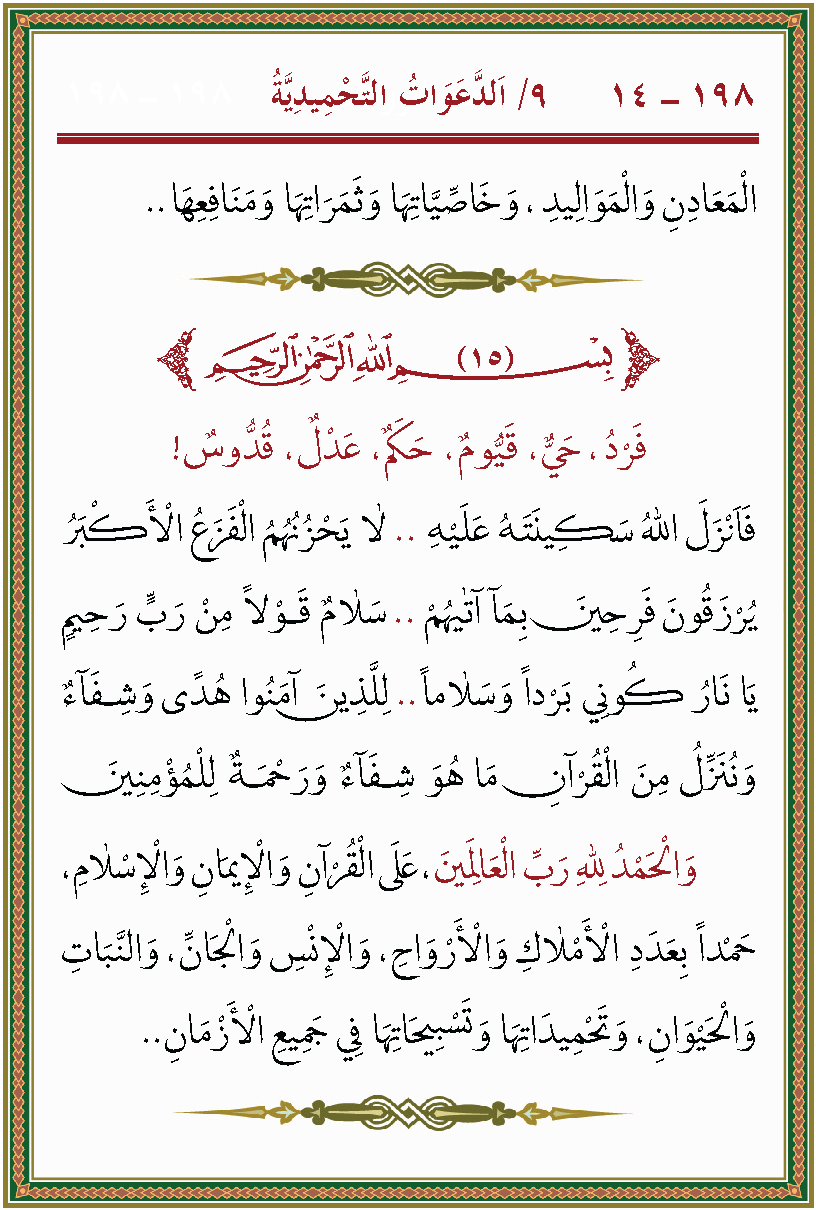 ١٩٨ ـ ١٤ ٩/ اَلدَّعَوَاتُ التَّحْمِيدِيَّةُ ١٩٨ ـ ١٩٨
الْمَعَادِنِ وَالْمَوَالِيدِ ، وَخَاصِّيَّاتِهَا وَثَمَرَاتِهَا وَمَنَافِعِهَا ..
بِسْمِ اللهِ الرَّحْمٰنِ الرَّحِيمِ (١٥)
فَرْدٌ ، حَيٌّ، قَيُّومٌ، حَكَمٌ، عَدْلٌ، قُدُّوسٌ!
فَاَنْزَلَ اللهُ سَكِينَتَهُ عَلَيْهِ .. لَا يَحْزُنُهُمُ الْفَزَعُ الْأَكْبَرُ
يُرْزَقُونَ فَرِحِينَ بِمَآ آتٰيهُمْ .. سَلَامٌ قَوْلاً مِنْ رَبٍّ رَحِيمٍ
يَا نَارُ كُونِي بَرْداً وَسَلَاماً .. لِلَّذِينَ آمَنُوا هُدًى وَشِفَآءٌ
وَنُنَزِّلُ مِنَ الْقُرْآنِ مَا هُوَ شِفَآءٌ وَرَحْمَةٌ لِلْمُؤْمِنِينَ
وَالْحَمْدُ لِلهِ رَبِّ الْعَالَمِينَ، عَلَى الْقُرْآنِ وَالْإِيمَانِ وَالْإِسْلَامِ،
حَمْداً بِعَدَدِ الْأَمْلَاكِ وَالْأَرْوَاحِ، وَالْإِنْسِ وَالْجَانِّ، وَالنَّبَاتِ
وَالْحَيْوَانِ، وَتَحْمِيدَاتِهَا وَتَسْبِيحَاتِهَا فِي جَمِيعِ الْأَزْمَانِ..